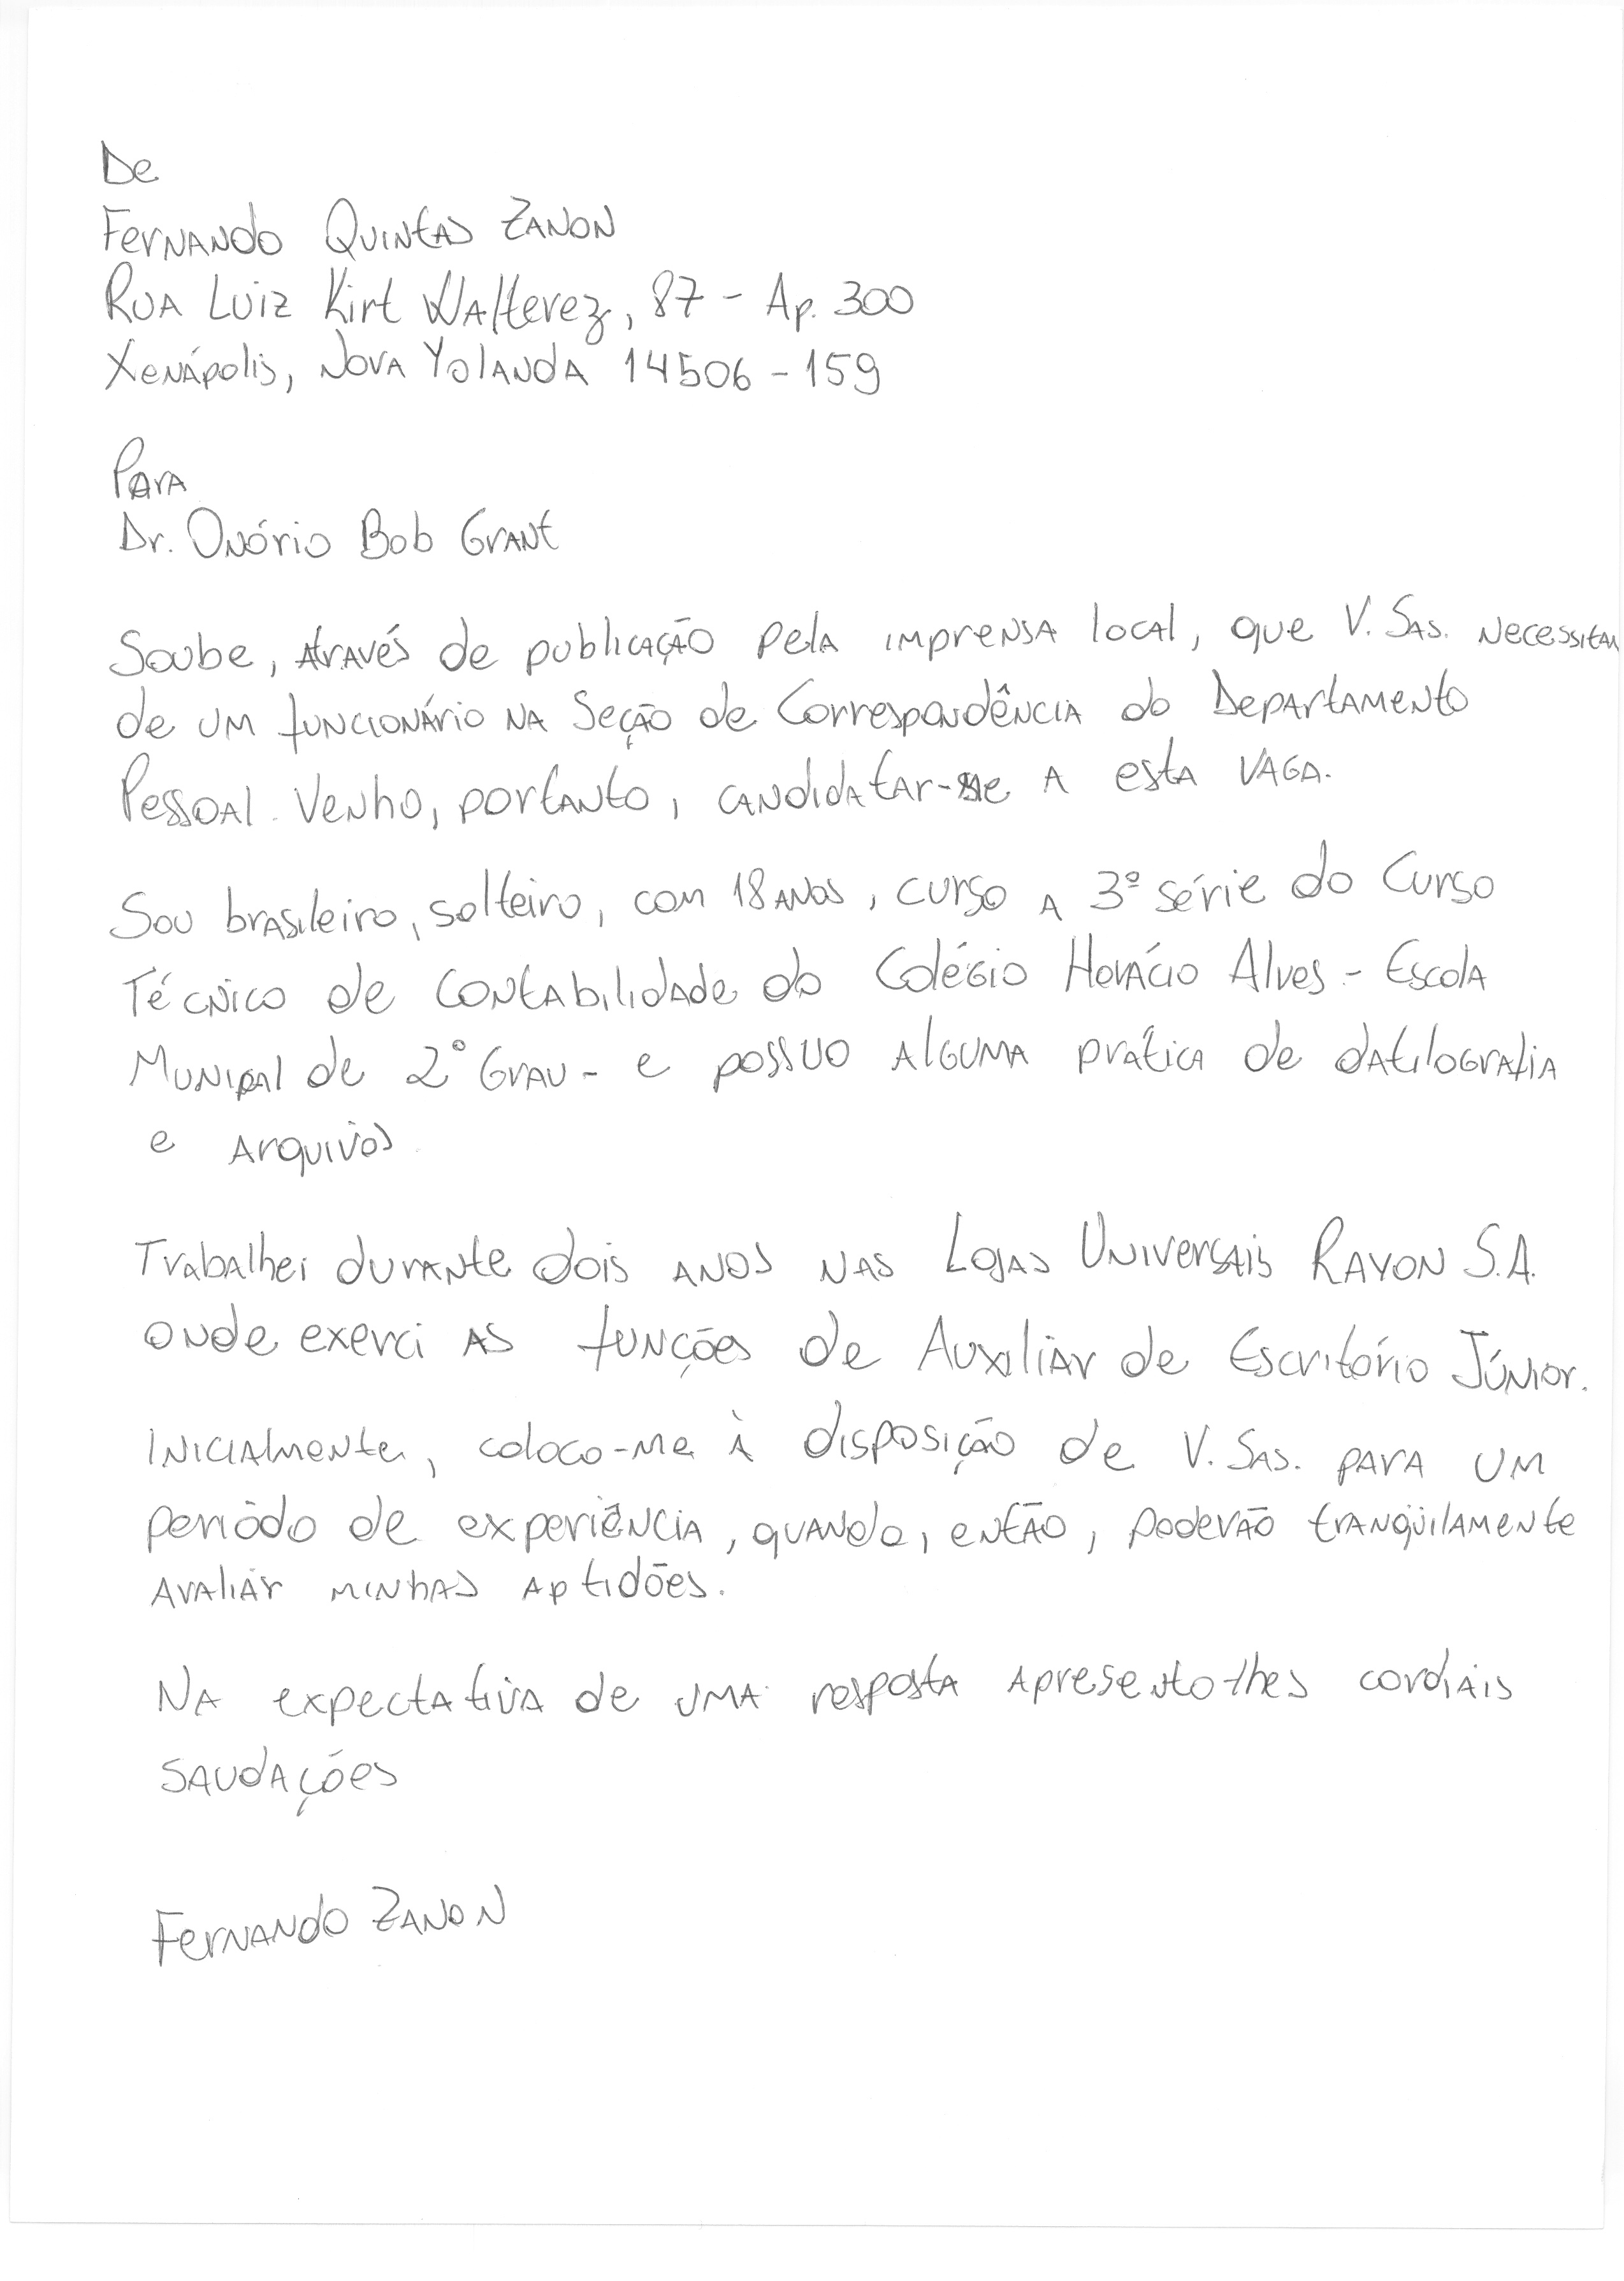 De
Fernando Quintas Zanon
Rua Luiz Kirt Walterez, 87 - Ap. 300
Xenápolis, Nova Yolanda 14506-159
Para
Dr. Onório Bob Grant
Soube, através de publicação pela imprensa local, que V. Sas. necessitam
de um funcionário na Seção de Correspondência do Departamento
Pessoal. Venho, portanto, candidatar-me a esta vaga.
Sou brasileiro, solteiro, com 18 anos, curso a 3ª série do Curso
Técnico de Contabilidade do Colégio Horácio Alves - Escola
Munipal de 2º Grau - e possuo alguma prática de datilografia
e arquivos
Trabalhei durante dois anos nas Lojas Universais Rayon S.A.
onde exerci as funções de Auxiliar de Escritório Júnior.
Inicialmente, coloco-me à disposição de V. Sas. para um
período de experiência, quando, então, poderão tranqüilamente
avaliar minhas aptidões.
Na expectativa de uma resposta apresento-lhes cordiais
saudações
Fernando Zanon